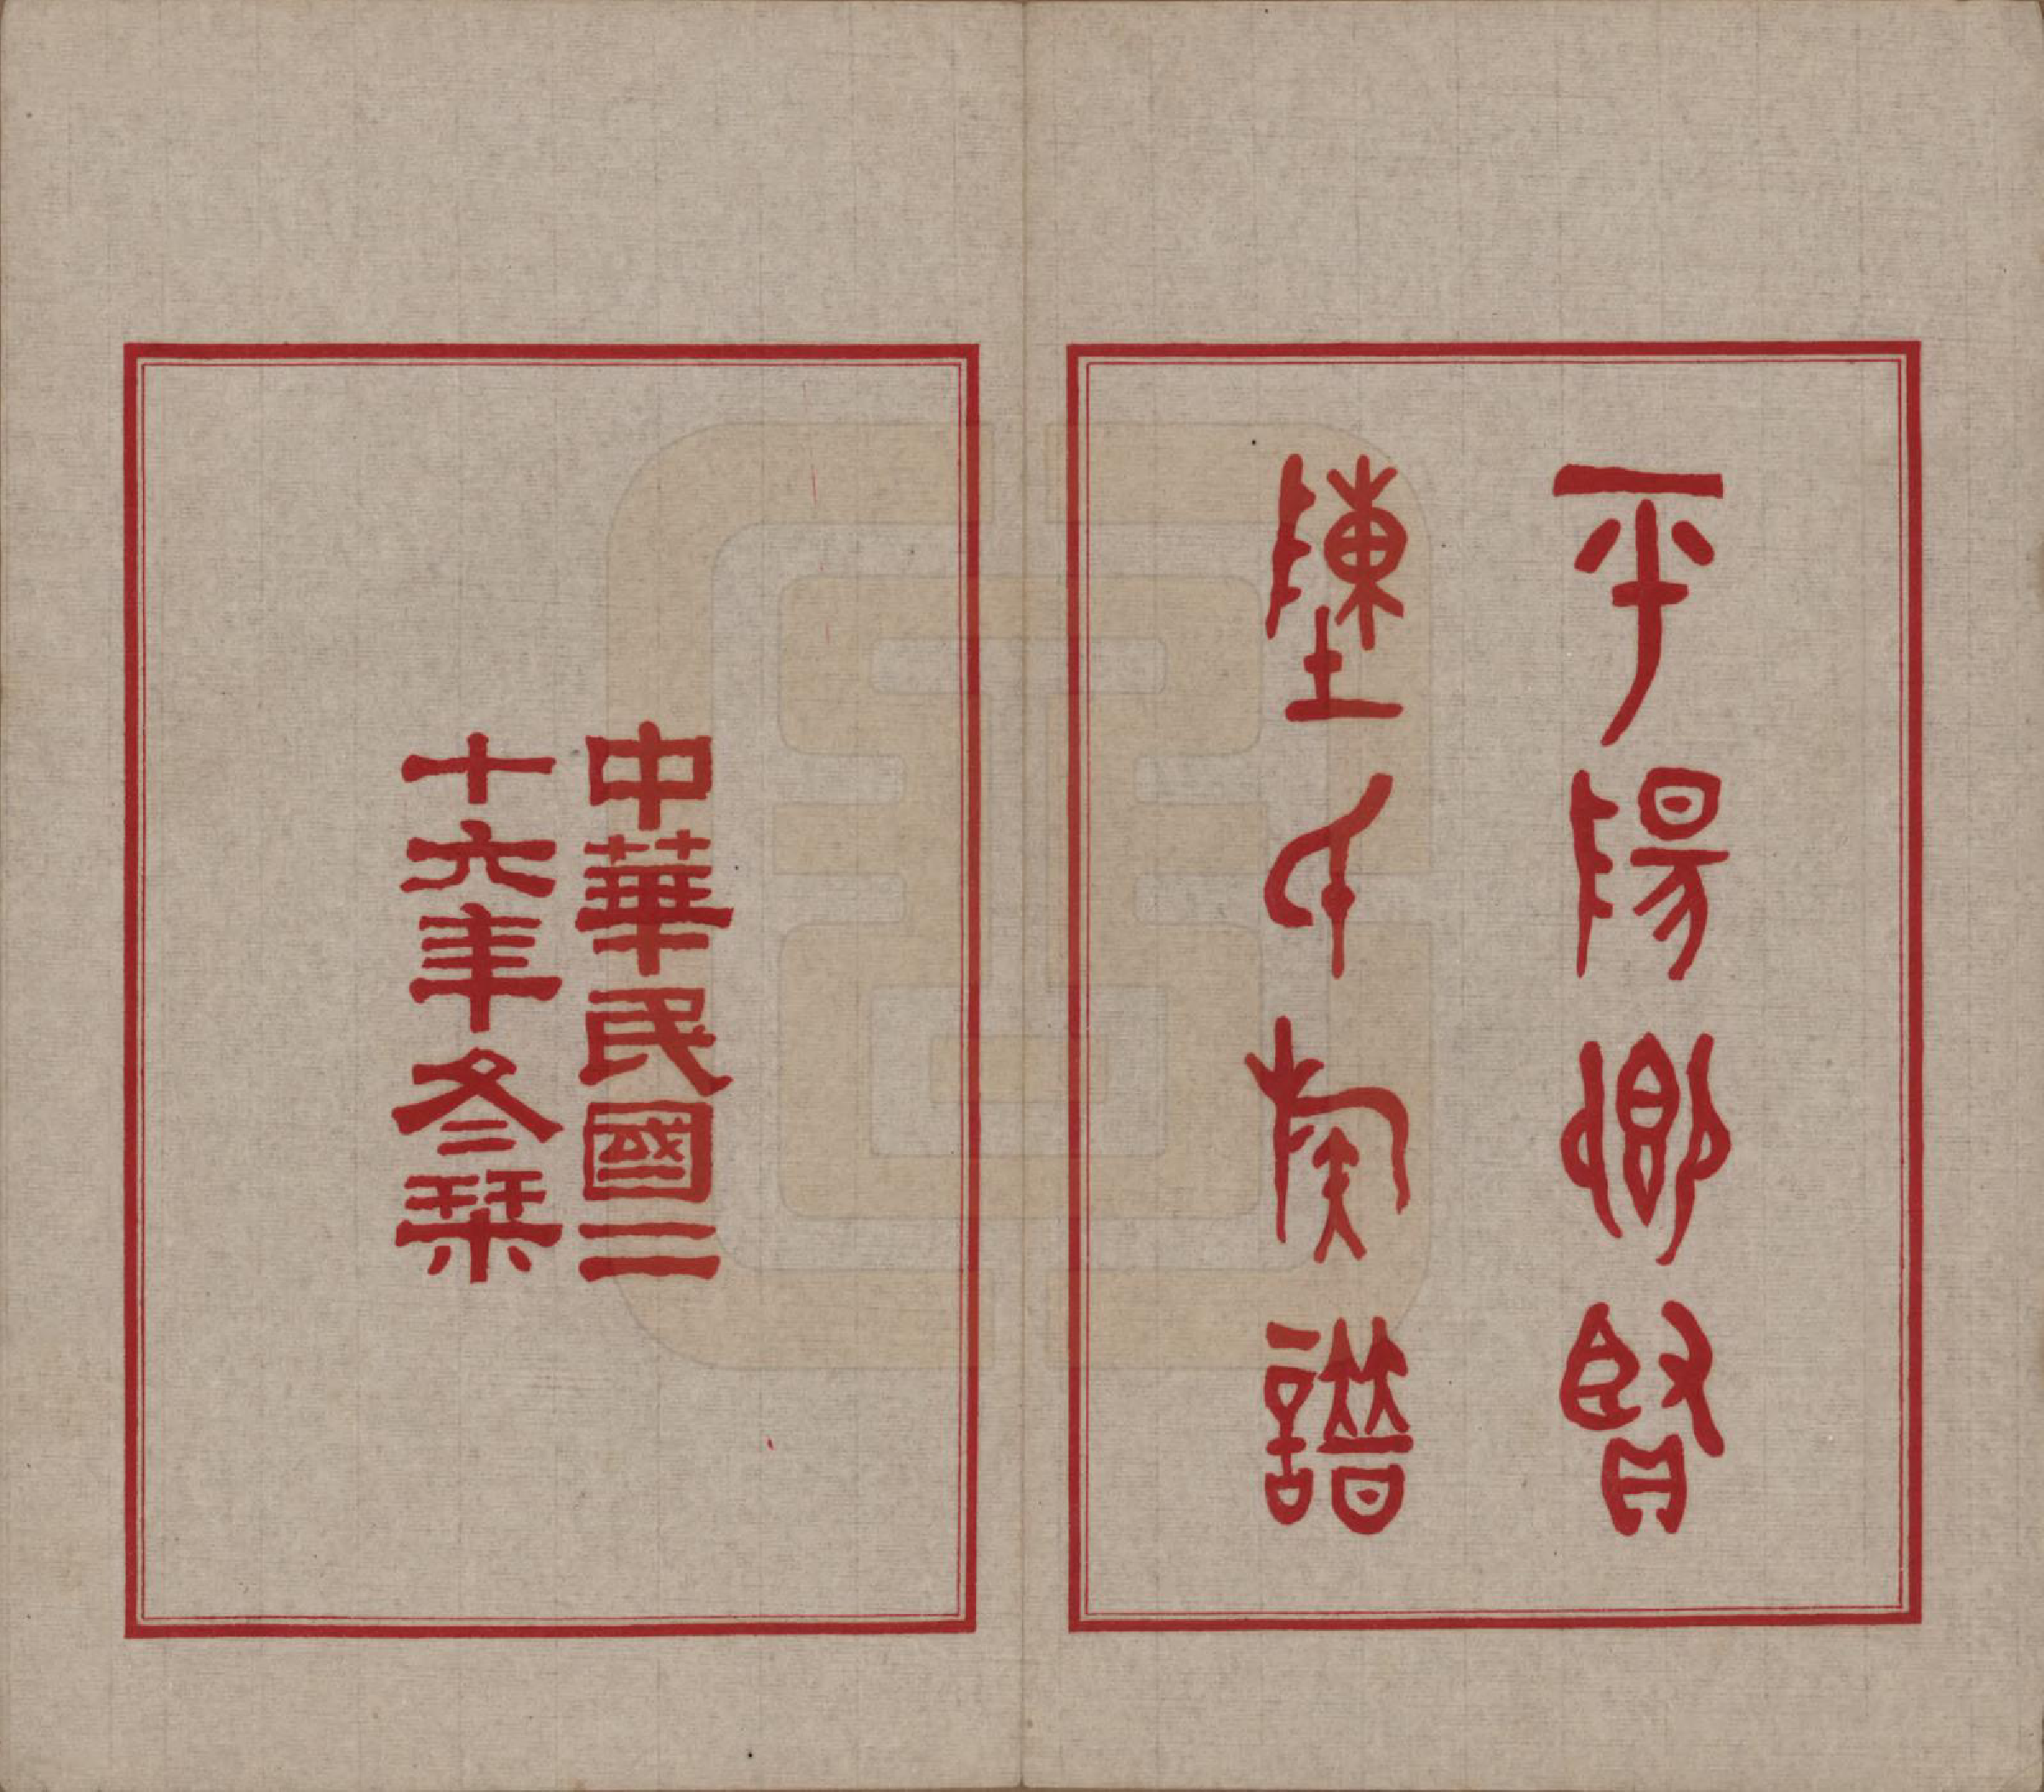 平陽鄉賢
陳氏族譜
中華民國二
十六年冬栞